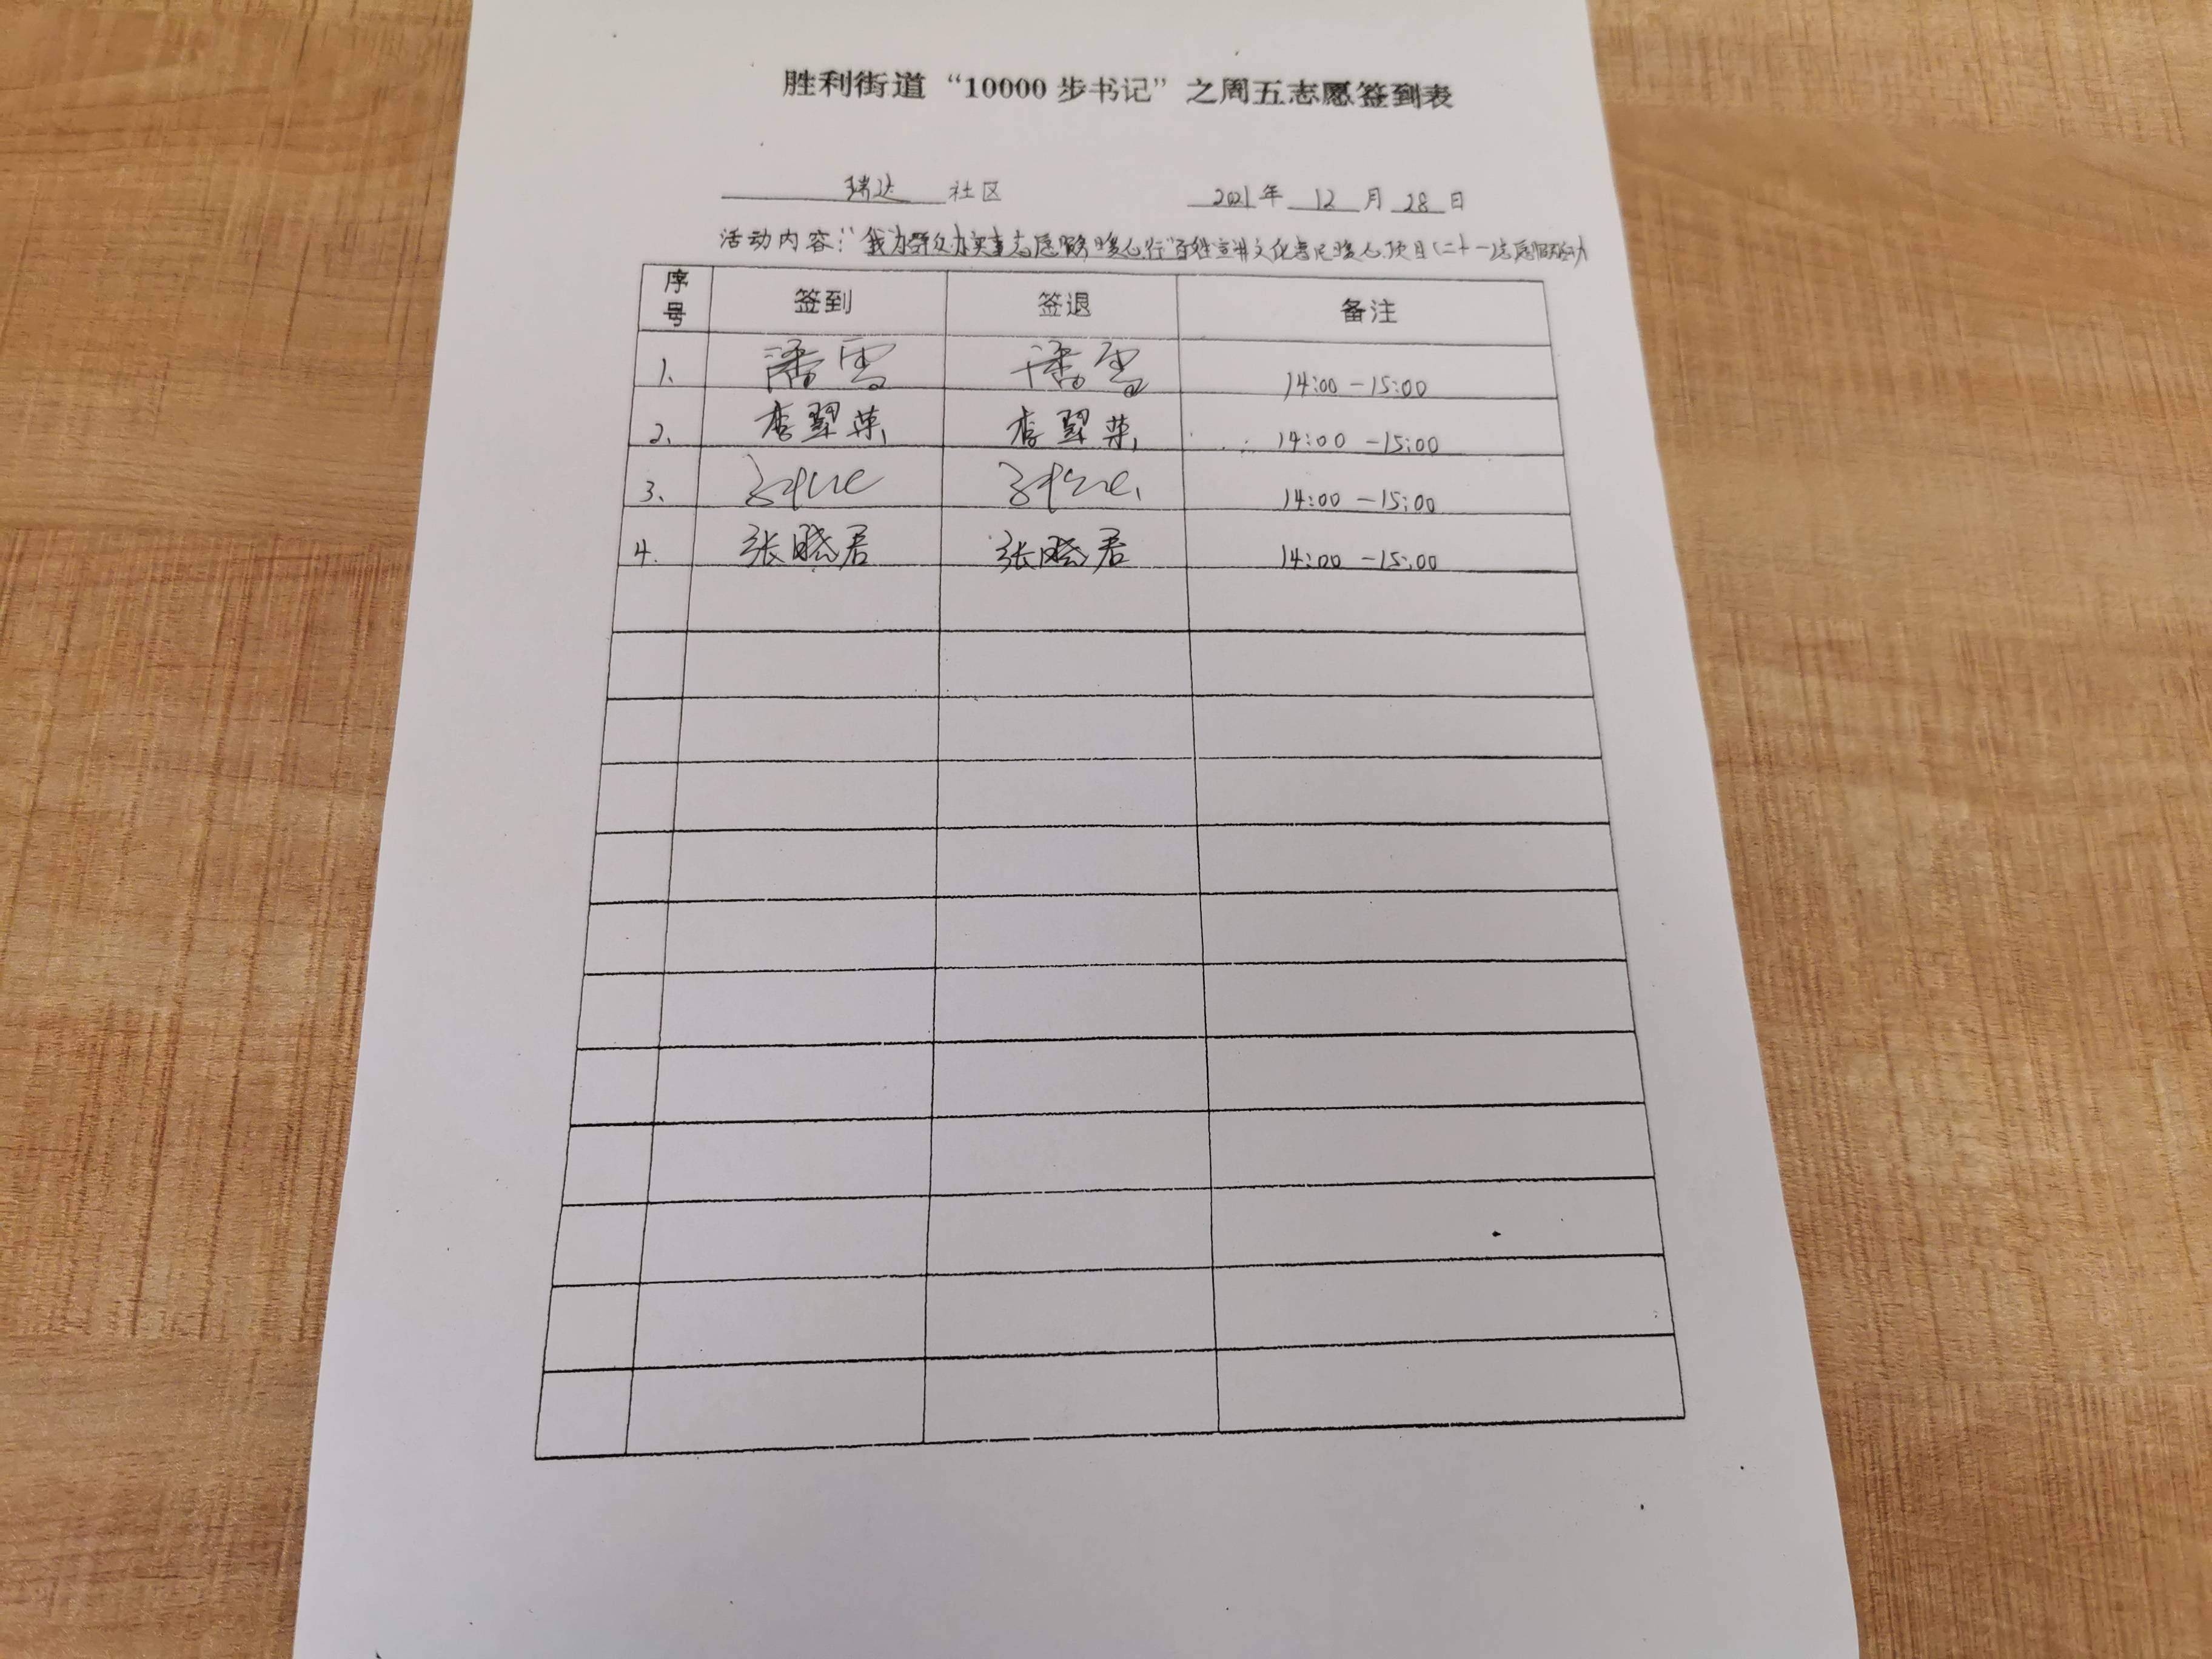 胜利街道“10000步书记”之周五志愿签到表
瑞达 社区 2021年 12 月 28 日
活动内容：“我为群众办实事志愿服务暖心行”百姓宣讲文化惠民暖心项目(二十一)志愿服务活动
序号 签到 签退 备注
1、 潘雪 潘雪 14:00 -15:00
2、 李翠荣 李翠荣 14:00 -15:00
3、 14:00 -15:00
4. 张晓君 张晓君 14:00 -15:00